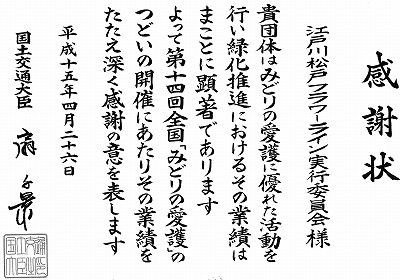 感謝状
江戸川松戸フラワーライン実行委員会様
貴団体はみどりの愛護に優れた活動を
行い緑化推進におけるその業績は
まことに顕著であります
よって第十四回全国「みどりの愛護」の
つどいの開催にあたりその業績を
たたえ深く感謝の意を表します
平成十五年四月二十六日
国土交通大臣